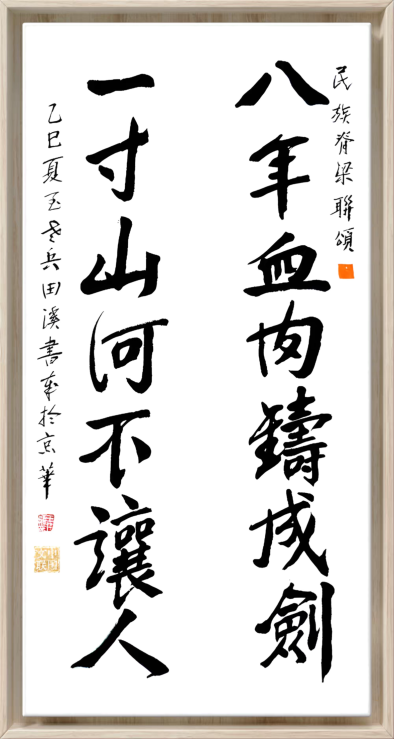 民族脊梁聯頌
八年血肉鑄成劍
一寸山河不讓人
乙巳夏老兵田溪書奉於京華